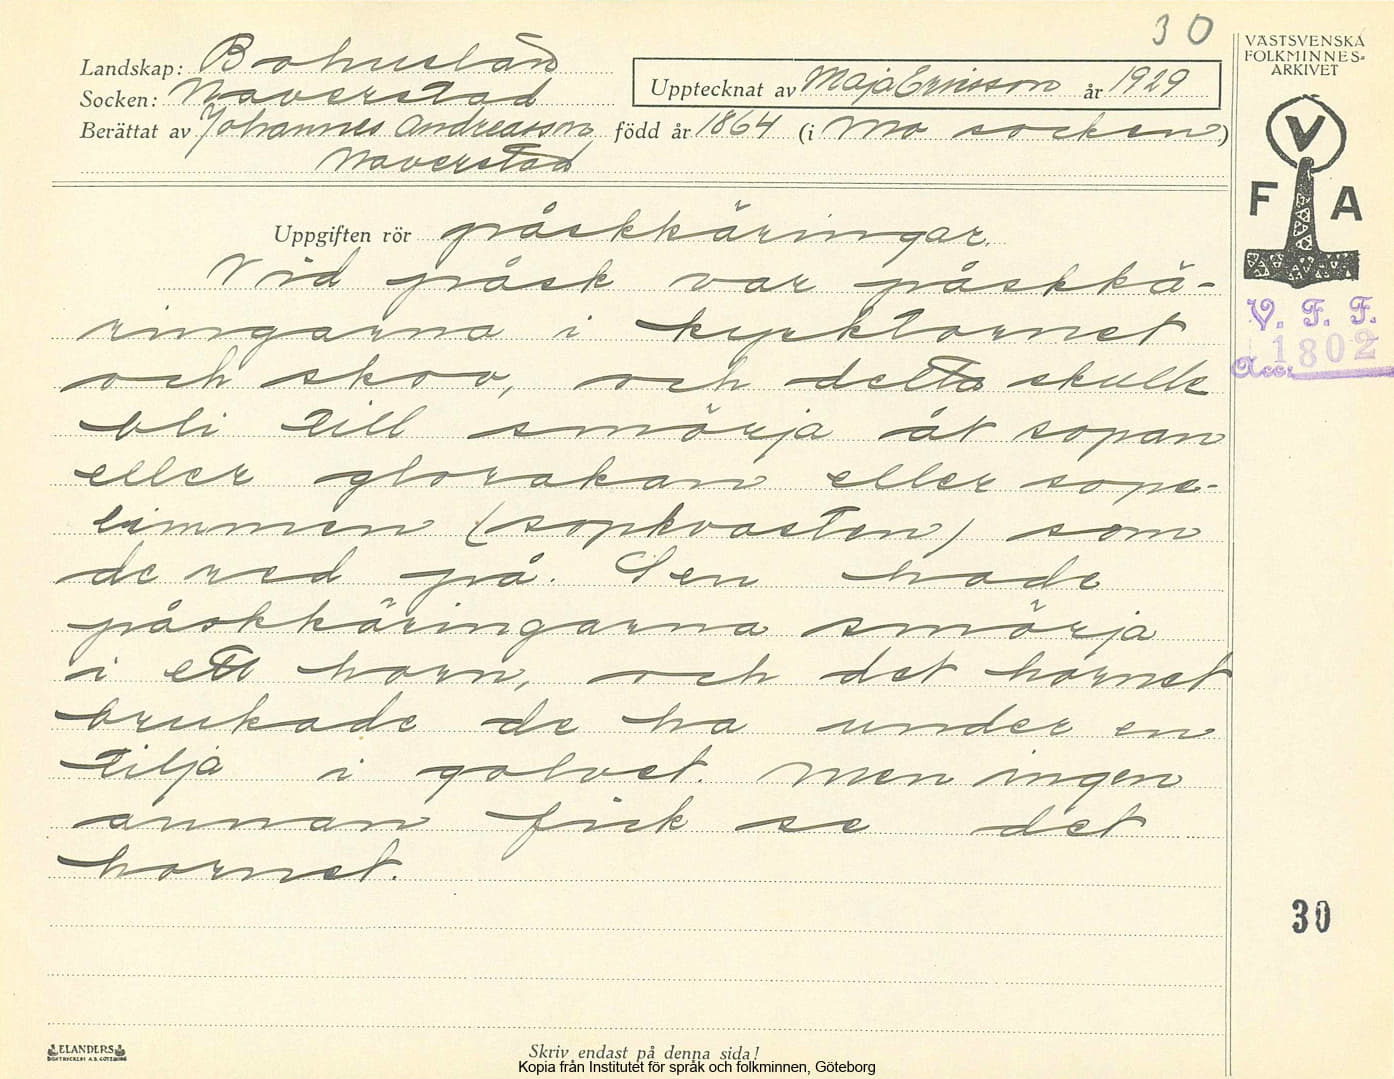 30
VÄSTSVENSKA
FOLKMINNES-
ARKIVET
Landskap: Bohuslän
Socken: Naverstad
Upptecknat av Maja Ericsson år 1929
Berättat av Johannes Andreasson, född år 1864 (i Mo socken)
Naverstad
V
F A
Uppgiften rör påskkäringar.
Vid påsk var påskkä-
ringarna i kyrktornet
och skov, och detta skulle
bli till smörja åt sopan
eller glorakan eller sope-
limmen (sopkvasten) som
de red på. Sen hade
påskkäringarna smörja
i ett horn, och det hornet
brukade de ha under en
tilja i golvet. Men ingen
annan fick se det
hornet.
V. F. F.
Acc: 1802
30
ELANDERS
BOKTRYCKERI A.B. GÖTEBORG
Skriv endast på denna sida!
Kopia från Institutet för språk och folkminnen, Göteborg